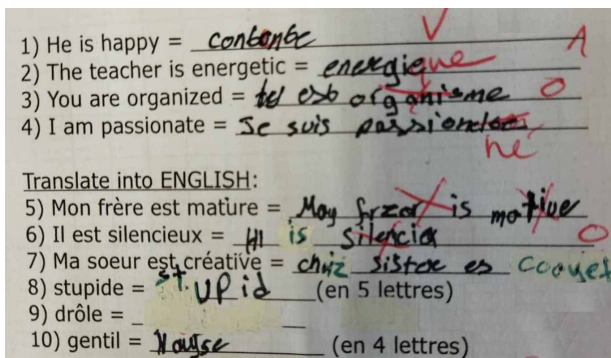 1) He is happy = contente V A
2) The teacher is energetic = energique
3) You are organized = tu est organisme O
4) I am passionate = Je suis passion né
Translate into ENGLISH:
5) Mon frère est mature = May frzor is motive
6) Il est silencieux = HI is silencia O
7) Ma soeur est créative = sister es
8) stupide = stUPid (en 5 lettres)
9) drôle =
10) gentil = (en 4 lettres)